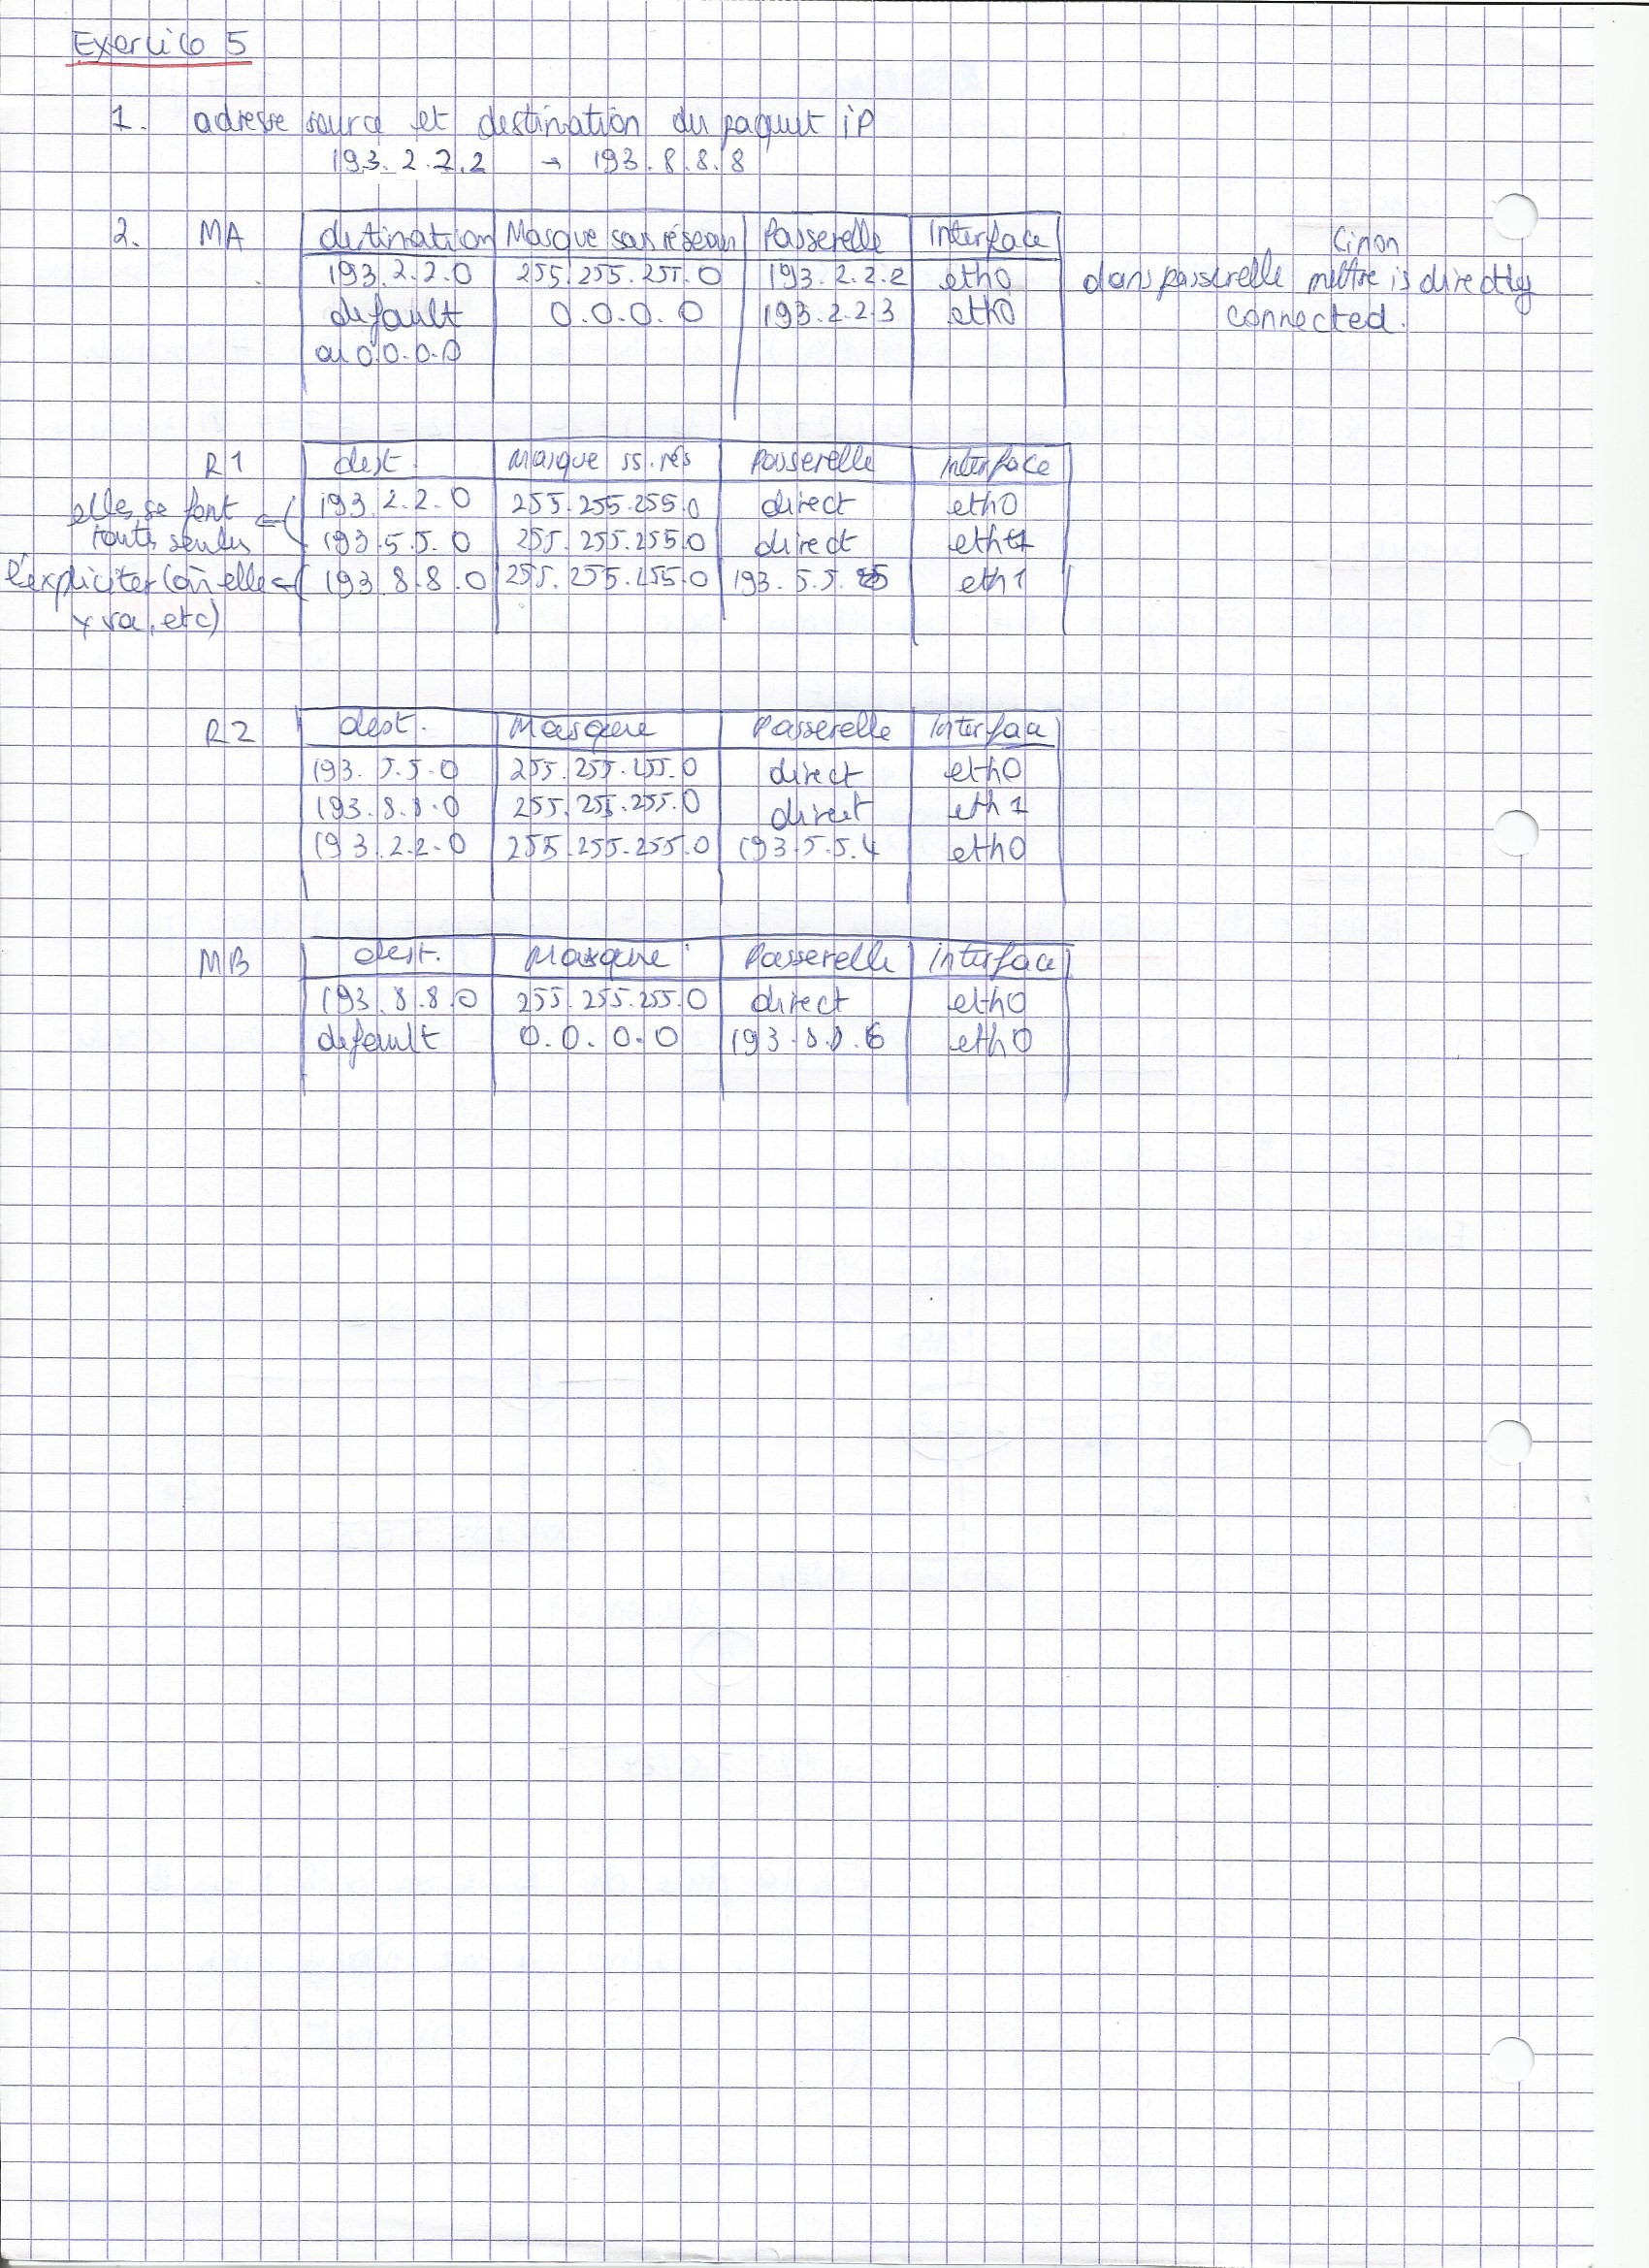 Exercice 5
1. adresse source et destination du paquet iP
193.2.2.2 → 193.8.8.8
2. MA
destination Masque sous réseau Passerelle Interface
193.2.2.0 255.255.255.0 193.2.2.2 eth0
default 0.0.0.0 193.2.2.3 eth0
ou 0.0.0.0
Cinon
dans passerelle mettre is directly
connected.
R1
dest. Masque ss.rés Passerelle Interface
193.2.2.0 255.255.255.0 direct eth0
193.5.5.0 255.255.255.0 direct eth1
193.8.8.0 255.255.255.0 193.5.5.5 eth1
elles se font
toutes seules
l'expliciter (où elle
y va, etc)
R2
dest. Masque Passerelle Interface
193.5.5.0 255.255.255.0 direct eth0
193.8.8.0 255.255.255.0 direct eth1
193.2.2.0 255.255.255.0 193.5.5.4 eth0
MB
dest. Masque Passerelle Interface
193.8.8.0 255.255.255.0 direct eth0
default 0.0.0.0 193.8.8.6 eth0